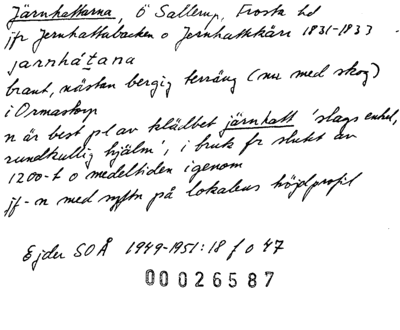 Järnhattarna, Ö Sallerup, Frosta hd
jfr Jernhattabacken o Jernhattkärr 1831-1833
jarnhátana
brant, nästan bergig terräng (nu med skog)
i Ormastorp
n är best pl av klädbet järnhatt 'slags enkel,
rundkullig hjälm', i bruk fr slutet av
1200-t o medeltiden igenom
jf-n med syftn på lokalens höjdprofil
Ejder SOÅ 1949-1951:18 f o 47
00026587